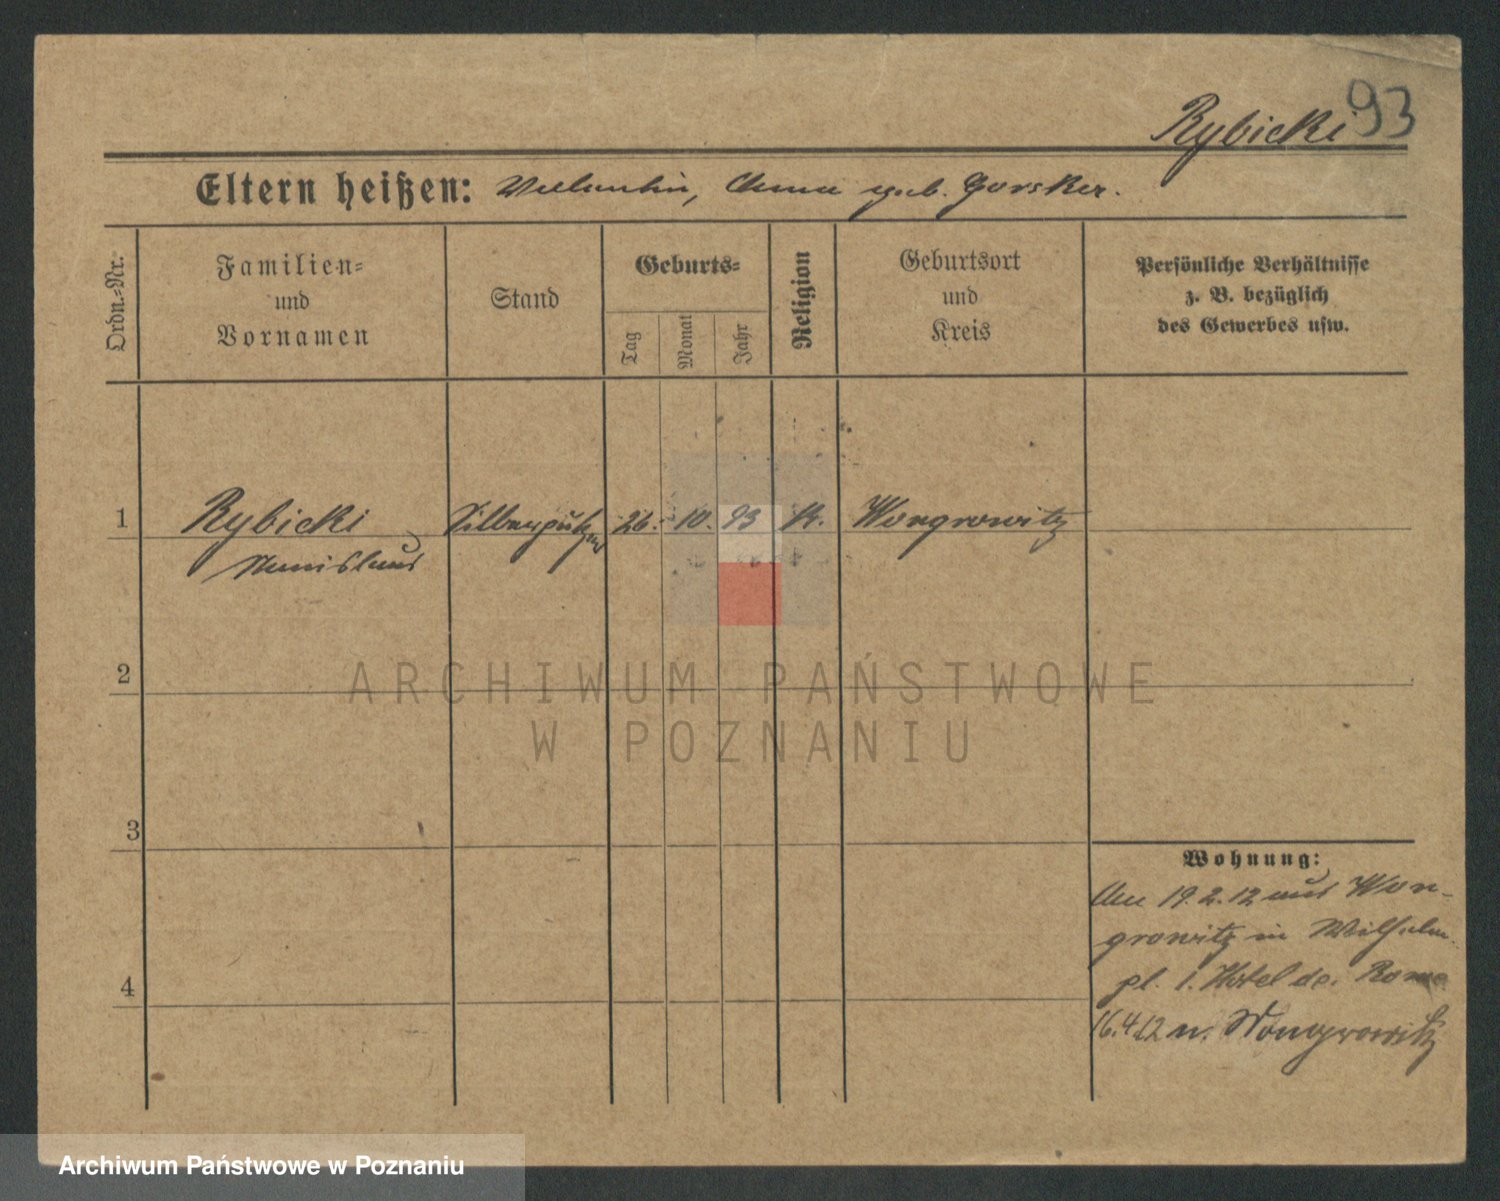 93
Rybicki
Eltern heißen: Valentin, Anna geb. Gorska.
Ordn.-Nr.
Familien-
und
Vornamen
Stand
Geburts-
Tag
Monat
Jahr
Religion
Geburtsort
und
Kreis
Persönliche Verhältnisse
z. B. bezüglich
des Gewerbes usw.
1
Rybicki
Stanislaus
Silberputzer
26.
10.
93
k.
Wongrowitz
2
3
4
Wohnung:
Am 19.2.12 aus Won-
growitz in Wilhelm-
pl. 1. Hotel de. Rome
16.4.12 n. Wongrowitz
ARCHIWUM PAŃSTWOWE
W POZNANIU
Archiwum Państwowe w Poznaniu